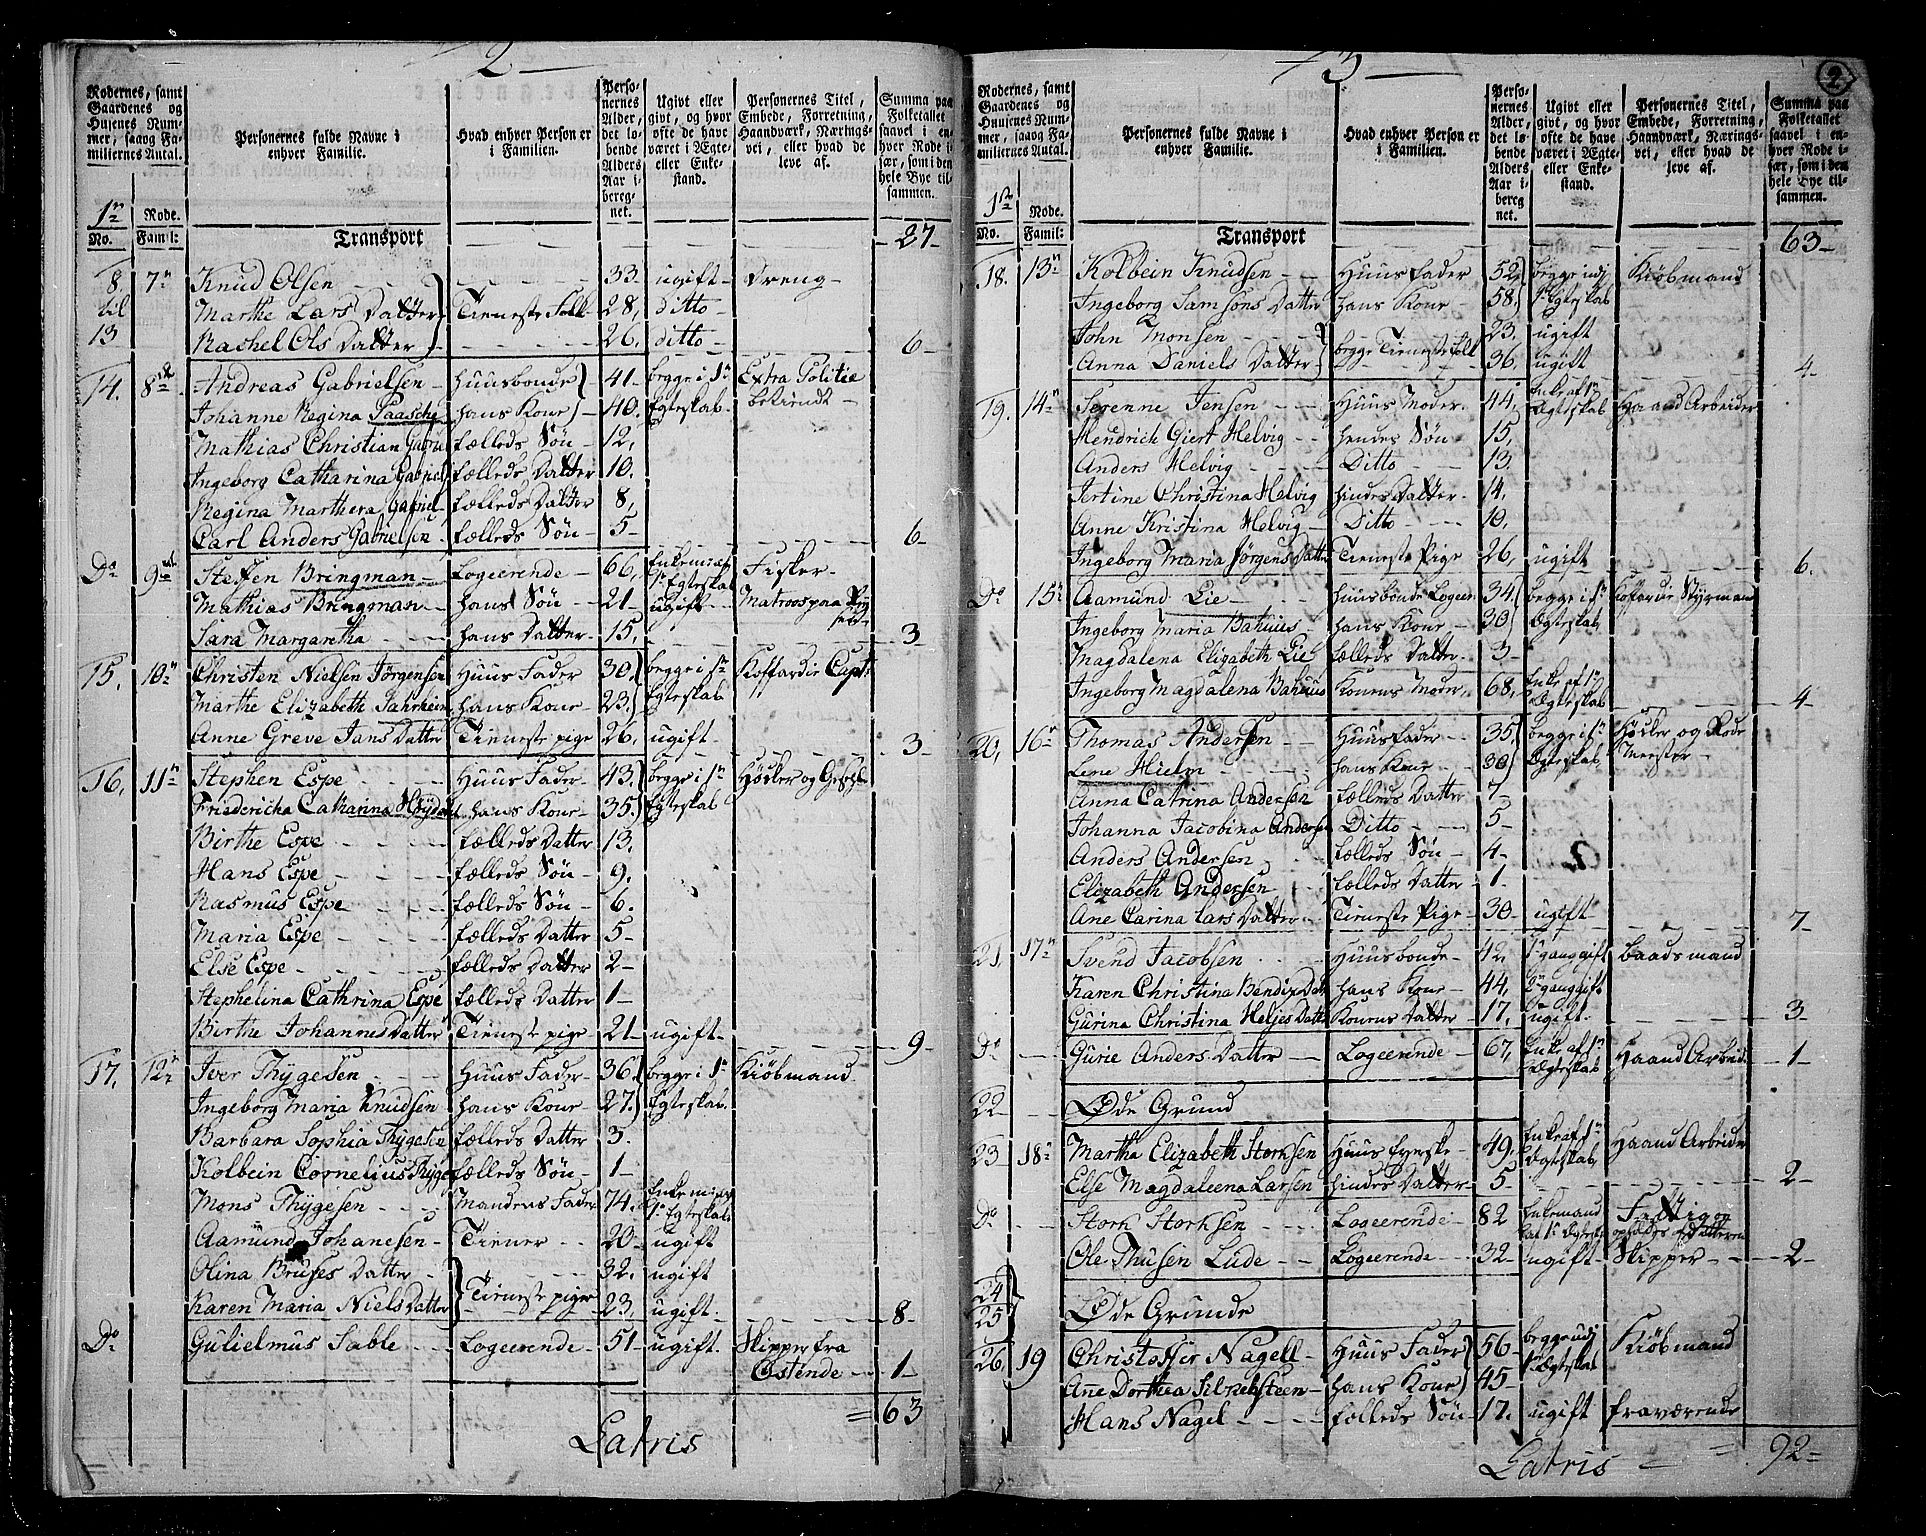 2
Rodernes, samt Gaardenes og Husenes Nummer, saavog Familiernes Antal.
Personernes fulde Navne i enhver Familie.
Hvad enhver Person er i Familien.
Personernes Alder, det løbende Alders Aar iberegnet.
Ugivt eller givt, og hvor ofte de have været i Ægte- eller Enkestand.
Personernes Titel, Embede, Forretning, Haandværk, Næringsvei, eller hvad de leve af.
Summa paa Folketallet saavel i enhver Rode især, som i den hele Bye tilsammen.
1n Rode.
No. Famil:
Transport 27
8 7n Knud Olsen 33. ugift Dreng
til Marthe Lars Datter Tieneste Folk 28, ditto
13 Rachel Ols Datter 26. ditto 6
14. 8de Andreas Gabrielsen huusbonde 41. begge i 1n Extra Politie
Johanne Regina Paasche hans Kone 40. Egteskab. betiendt
Mathias Christian Gabriel fælleds Søn 12,
Ingeborg Catharina Gabriels fælleds Datter 10.
Regina Marthera Gabriel fælleds Datter 8,
Carl Anders Gabrielsen fælleds Søn 5 6
Do 9de Steffen Bringman Logeerende 66, Enkem: af 1n Egteskab Fisker
Mathias Bringman hans Søn 21 ugift Matroos paa
Sara Margaretha hans Datter 15, 3
15. 10n Christen Nielsen Jörgensen Huus Fader 30, begge i 1n Koffardie Capt:
Marthe Elizabeth Jahrheim hans Kone 23. Egteskab
Anne Greve Jans Datter Tieneste pige 26, ugift 3
16. 11n Stephen Espe Huus Fader 43, begge i 1n Høcker og
Friedericha Catharina hans Kone 35. Egteskab
Birthe Espe fælleds Datter 13.
Hans Espe fælleds Søn 9.
Rasmus Espe fælleds Søn 6.
Maria Espe fælleds Datter 5
Else Espe fælleds Datter 2
Stephelina Cathrina Espe fælleds Datter 1
Birthe Johannes Datter Tieneste pige 21 ugift 9
17. 12n Iver Thÿgesen Huus Fader 36. begge i 1n Kiöbmand
Ingeborg Maria Knudsen hans Kone 27. Egteskab.
Barbara Sophia Thÿgesen fælleds Datter 3.
Kolbein Cornelius Thÿge fælleds Søn 1
Mons Thÿgesen Mandens Fader 74. Enkem: af 1n Egteskab
Aamund Johanesen Tiener 20 ugift
Olina Bruses Datter 32. ugift
Karen Maria Niels Datter Tieneste piger 23, ugift 8
Do Gulielmus Sable Logeerende 51 ugift Skipper fra Ostende 1
= 63
Latris
3
2
Rodernes, samt Gaardenes og Huusenes Nummer, saavog Familiernes Antal.
Personernes fulde Navne i enhver Familie.
Hvad enhver Person er i Familien.
Personernes Alder, det løbende Alders Aar iberegnet.
Ugivt eller givt, og hvor ofte de have været i Ægte- eller Enkestand.
Personernes Titel, Embede, Forretning, Haandværk, Næringsvei, eller hvad de leve af.
Summa paa Folketallet saavel i enhver Rode især, som i den hele Bye tilsammen.
1n Rode.
No. Famil:
Transport 63
18. 13n Kolbein Knudsen Huus fader 52, begge udj Kiöbmand
Ingeborg Samsons Datter hans Kone 58, 1n Egteskab
John Monsen 23, ugift
Anna Daniels Datter begge Tieneste folk 36, ugift 4
19. 14n Serenne Jensen Huus Moder 44, Enke af 1n Ægteskab Haand Arbeider
Hendrich Giert Helvig hendes Søn 15,
Anders Helvig Ditto 13.
Jertine Christina Helvig hindes Datter 14,
Anne Kristina Helvig Ditto 10,
Ingeborg Maria Jørgens Datter Tieneste Pige 26, ugift 6.
Do 15n Aamund Lie huusbonde Logeer: 34, begge i 1n Koffardie Styrmand
Ingeborg Maria Bahuus hans Kone 30 Ægteskab,
Magdalena Elizabeth Lie fælleds Datter 3
Ingeborg Magdalena Bahuus Konens Moder 68, Enke af 1n Ægteskab 4
20, 16n Thomas Andersen Huusfader 35, begge i 1n Høcker og Rode
Lene Hielm hans Kone 30 Ægteskab, Meester
Anna Catrina Andersen fælleds Datter 7
Johanna Jacobina Andersen Ditto 5
Anders Andersen fælleds Søn 4
Elizabeth Andersen fælleds Datter 1
Ane Carina Lars Datter Tieneste Pige 30 ugift 7
21. 17n Svend Jacobsen Huusbonde 42 1n gang gift Baadsmand
Karen Christina Bendix Datt hans Kone 44, gang gift
Gurina Christina Heljes Datt Konens Datter 17, ugift 3
Do Gurie Anders Datter Logeerende 67, Enke af 1n Ægteskab Haand Arbeid 1
22 Øde Grund
23 18n Martha Elizabeth Storksen Huus 49, Enke af 1n Ægteskab, Haand Arbeider
Else Magdaleena Larsen hindes Datter 5 2
Do Stork Storksen Logeerende 82 Enkemand Fattig og
Ole Thusen Lude Logeerende 32 ugift Skipper 2
24
25 Øde Grunde
26. 19 Christoffer Nagell Huus Fader 56 begge udj 1n Ægteskab Kiöbmand
Ane Dorthea hans Kone 45
Hans Nagel fælleds Søn 17. ugift fraværende
Latris = 92